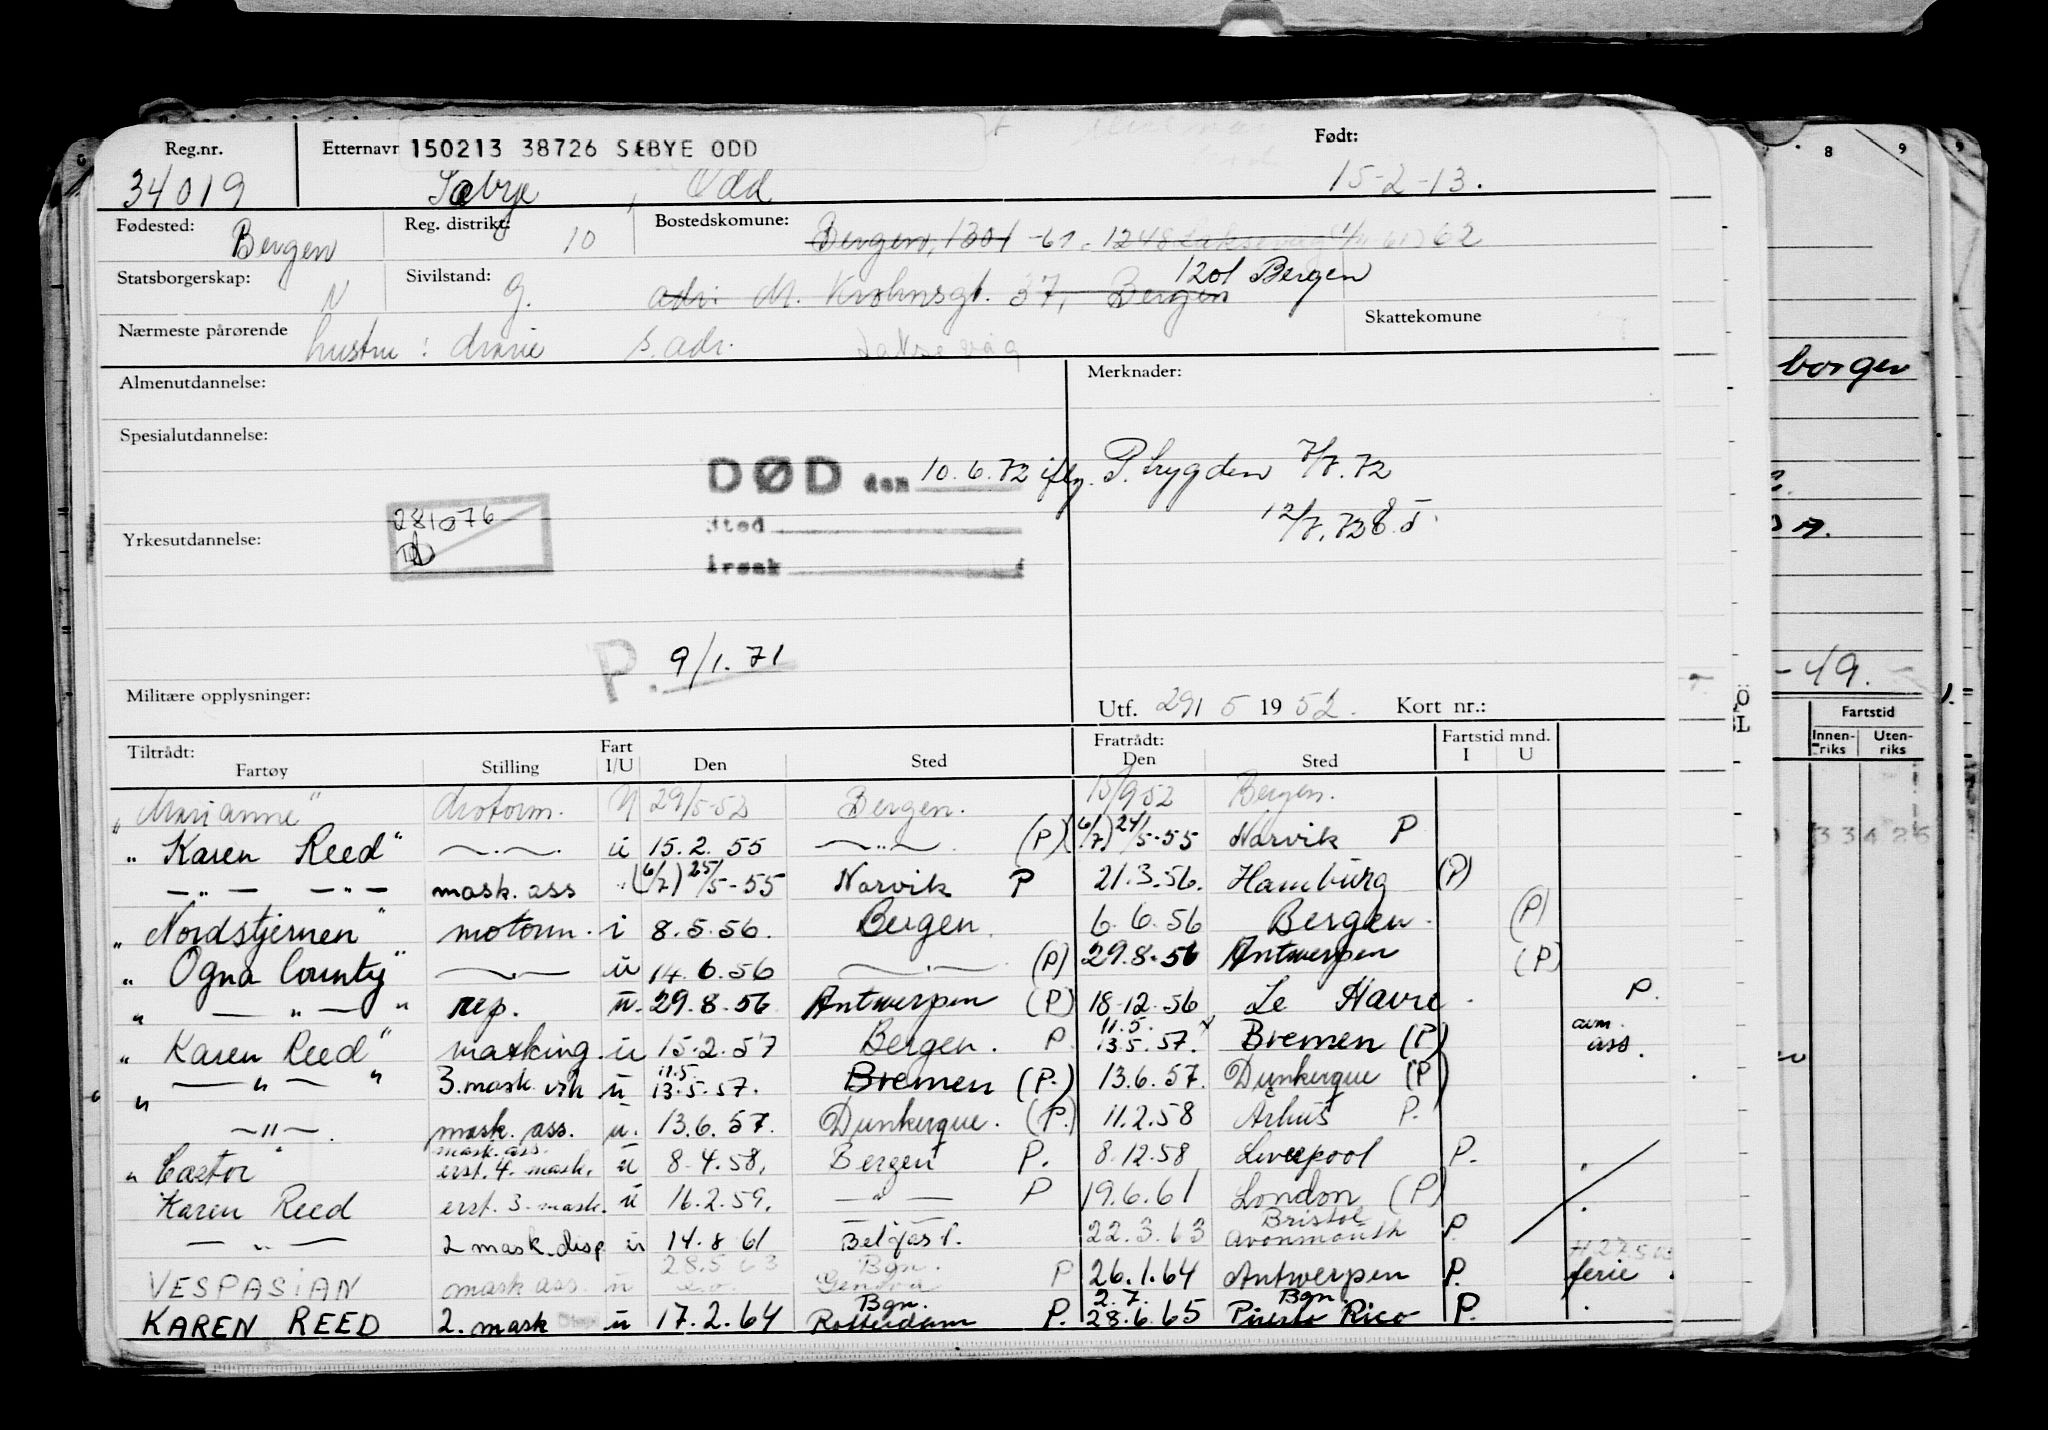 Reg.nr. Etternavn 150213 38726 SÆBYE ODD Født:
34019 Sæbye, Odd 15-2-13.
Fødested: Bergen Reg. distrikt: 10 Bostedskomune: Bergen, 1301 -61. 1248 Laksevåg 62
1201 Bergen
Statsborgerskap: N Sivilstand: g. adr: M. Krohnsgt. 37, Bergen
Nærmeste pårørende hustru: Marie s. adr. Laksevåg Skattekomune
Almenutdannelse: Merknader:
Spesialutdannelse:
DØD den 10.6.72 iflg. P. trygden 7/7.72
281076 Sted 12/7.72
Yrkesutdannelse:
årsak
P. 9/1.71
Militære opplysninger: Utf. 29/5 1952. Kort nr.:
Tiltrådt: Fart Fratrådt: Fartstid mnd.
Fartøy Stilling I/U Den Sted Den Sted I U
"Marianne" Motorm. U 29/5-52 Bergen. 15/9-52 Bergen.
"Karen Reed" —.—.— u 15.2.55 —..— (P) (6/7) 24/5-55 Narvik P
—"— —"— mask. ass (6/7) 25/5-55 Narvik P 21.3.56. Hamburg (P)
"Nordstjernen" motorm. i 8.5.56. Bergen. 6.6.56 Bergen. (P)
"Ogna County" —.— u 14.6.56 —.— (P) 29.8.56 Antwerpen (P)
" —"— " rep. u. 29.8.56 Antwerpen (P) 18.12.56 Le Havre. P.
"Karen Reed" masking. u 15.2.57 Bergen. P. 11.5. 13.5.57. Bremen (P) avm. ass.
" —"— " 3. mask. vik u 11.5. 13.5.57. Bremen (P.) 13.6.57. Dunkerque (P)
—"—. mask. ass. u. 13.6.57. Dunkerque. (P.) 11.2.58 Århus P.
mask. ass.
"Castor" erst. 4. mask. u 8.4.58. Bergen P. 8.12.58 Liverpool P.
Karen Reed erst. 3. mask. u 16.2.59. —"— P 19.6.61 London (P)
—"— 2 mask. disp u 14.8.61 Belfast. 22.3.63 Bristol Avonmouth P.
28.5.63 Bgn.
VESPASIAN mask ass. u Genova P 26.1.64 Antwerpen P. ferie
Bgn. 2.7. Bgn.
KAREN REED 2. mask u 17.2.64 Rotterdam P. 28.6.65 Puerto Rico P.
8 9
borgen
-49.
Fartstid
Innen-riks Uten-riks